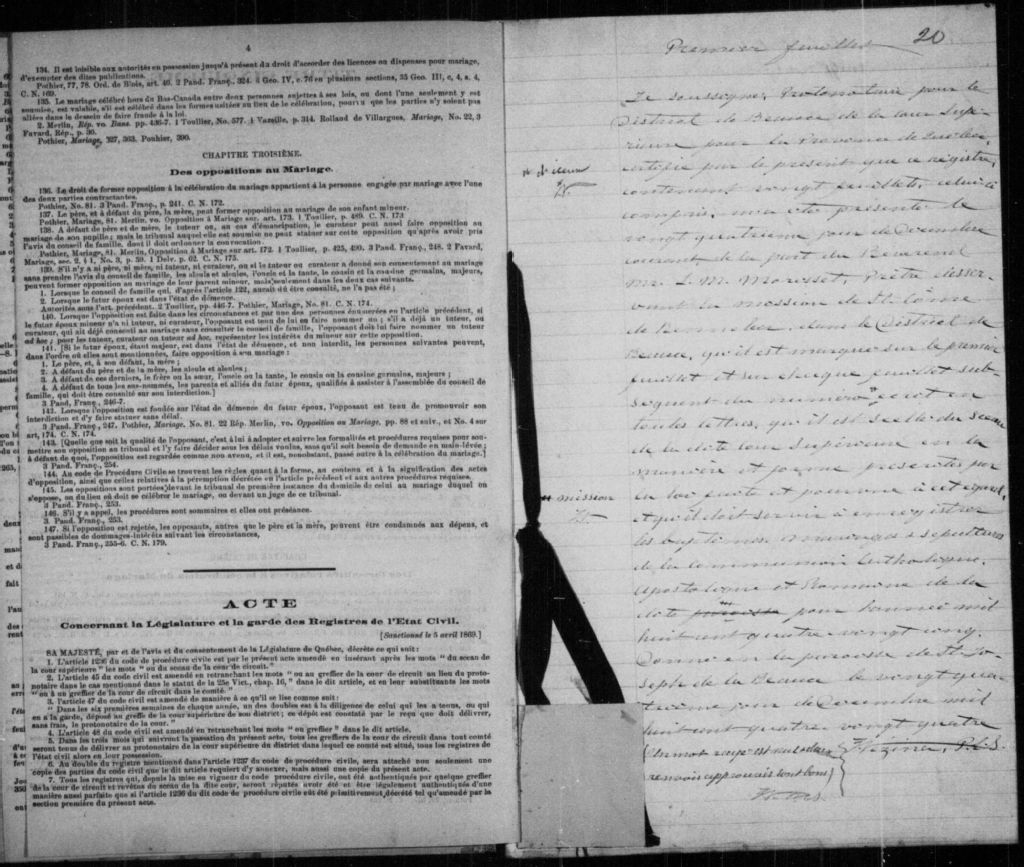 4
134. Il est loisible aux autorités en possession jusqu'à présent du droit d'accorder des licences ou dispenses pour mariage,
d'exempter des dites publications.
Pothier, 77, 78. Ord. de Blois, art. 40. 2 Pand. Franç. 324. Geo. IV, c. 76 en plusieurs sections, 35 Geo. III, c. 4, s. 4,
C. N. 169.
135. Le mariage célébré hors du Bas-Canada entre deux personnes sujettes à ses lois, ou dont l'une seulement y est
soumise, est valable, s'il est célébré dans les formes usitées au lieu de la célébration, pourvu que les parties n'y soient pas
allées dans le dessein de faire fraude à la loi.
2 Merlin, Rép. vo. Bans. pp. 436-7. 1 Toullier, No. 577. 1 Vazeille, p. 314. Rolland de Villargues, Mariage, No. 22, 3
Favard, Rép., p. 30.
Pothier, Mariage, 327, 363. Pouhier, 390.
CHAPITRE TROISIÈME.
Des oppositions au Mariage.
136. Le droit de former opposition à la célébration du mariage appartient à la personne engagée par mariage avec l'une
des deux parties contractantes.
Pothier, No. 81. 3 Pand. Franç., p. 241. C. N. 172.
137. Le père, et à défaut du père, la mère, peut former opposition au mariage de son enfant mineur.
Pothier, Mariage, 81. Merlin, vo. Opposition à Mariage sur. art. 173. 1 Toullier, p. 489. C. N. 173
138. A défaut de père et de mère, le tuteur ou, au cas d'émancipation, le curateur peut aussi faire opposition au
mariage de son pupille; mais le tribunal auquel elle est soumise ne peut statuer sur cette opposition qu'après avoir pris
l'avis du conseil de famille, dont il doit ordonner la convocation.
Pothier, Mariage, 81. Merlin, Opposition à Mariage sur art. 172. 1 Toullier, p. 425, 490. 3 Pand. Franç., 248. 2 Favard,
Mariage, sec. 2, § 1, No. 3, p. 59. 1 Delv. p. 62. C. N. 175.
139. S'il n'y a ni père, ni mère, ni tuteur, ni curateur, ou si le tuteur ou curateur a donné son consentement au mariage
sans prendre l'avis du conseil de famille, les aïeuls et aïeules, l'oncle et la tante, le cousin et la cousine germains, majeurs,
peuvent former opposition au mariage de leur parent mineur, mais seulement dans les deux cas suivants.
1. Lorsque le conseil de famille qui, d'après l'article 122, aurait dû être consulté, ne l'a pas été;
2. Lorsque le futur époux est dans l'état de démence.
Autorités sous l'art. précédent. 2 Toullier, pp. 446-7. Pothier, Mariage, No. 81. C. N. 174.
140. Lorsque l'opposition est faite dans les circonstances et par une des personnes énumérées en l'article précédent, si
le futur époux mineur n'a ni tuteur, ni curateur, l'opposant est tenu de lui en faire nommer un; s'il a déjà un tuteur, ou
curateur, qui ait déjà consenti au mariage sans consulter le conseil de famille, l'opposant doit lui faire nommer un tuteur
ad hoc; pour les tuteur, curateur ou tuteur ad hoc, représenter les intérêts du mineur sur cette opposition.
141. [Si le futur époux, étant majeur, est dans l'état de démence, et non interdit, les personnes suivantes peuvent,
dans l'ordre où elles sont mentionnées, faire opposition à son mariage:
1. Le père, et, à son défaut, la mère;
2. A défaut du père et de la mère, les aïeuls et aïeules;
3. A défaut de ces derniers, le frère ou la sœur, l'oncle ou la tante, le cousin ou la cousine germains, majeurs;
4. A défaut de tous les sus-nommés, les parents et alliés du futur époux, qualifiés à assister à l'assemblée du conseil de
famille, qui doit être consulté sur son interdiction.]
3 Pand. Franç., 246-7.
142. Lorsque l'opposition est fondée sur l'état de démence du futur époux, l'opposant est tenu de promouvoir son
interdiction et d'y faire statuer sans délai.
3 Pand. Franç., 247. Pothier, Mariage, No. 81. 22 Rép. Merlin, vo. Opposition au Mariage, pp. 88 et suiv., et No. 4 sur
art, 174. C. N. 174.
143. [Quelle que soit la qualité de l'opposant, c'est à lui à adopter et suivre les formalités et procédures requises pour sou-
mettre son opposition au tribunal et l'y faire décider sous les délais voulus, sans qu'il soit besoin de demande en main-levée;
à défaut de quoi, l'opposition est regardée comme non avenue, et il est, nonobstant, passé outre à la célébration du mariage.]
3 Pand. Franç., 254.
144. Au code de Procédure Civile se trouvent les règles quant à la forme, au contenu et à la signification des actes
d'opposition, ainsi que celles relatives à la péremption décrétée en l'article précédent et aux autres procédures requises.
145. Les oppositions sont portées devant le tribunal de première instance du domicile de celui au mariage duquel on
s'oppose, ou du lieu où doit se célébrer le mariage, ou devant un juge de ce tribunal.
3 Pand. Franç., 253.
146. S'il y a appel, les procédures sont sommaires et elles ont préséance.
3. Pand. Franç., 253.
147. Si l'opposition est rejetée, les opposants, autres que le père et la mère, peuvent être condamnés aux dépens, et
sont passibles de dommages-intérêts suivant les circonstances,
3 Pand. Franç., 255-6. C. N. 179.
ACTE
Concernant la Législature et la garde des Registres de l'Etat Civil.
[Sanctionné le 5 avril 1869.]
SA MAJESTÉ, par et de l'avis et du consentement de la Législature de Québec, décrète ce qui suit:
1. L'article 1236 du code de procédure civile est par le présent acte amendé en insérant après les mots " du sceau de
la cour supérieure " les mots " ou du sceau de la cour de circuit."
2. L'article 45 du code civil est amendé en retranchant les mots " ou au greffier de la cour de circuit au lieu du proto-
notaire dans le cas mentionné dans le statut de la 25e Vict., chap. 16, " dans le dit article, et en leur substituants les mots
" ou à un greffier de la cour de circuit dans le comté."
3. l'article 47 du code civil est amendé de manière à ce qu'il se lise comme suit:
" Dans les six premières semaines de chaque année, un des doubles est à la diligence de celui qui les a tenus, ou qui
en a la garde, déposé au greffe de la cour supérieure de son district; ce dépôt est constaté par le reçu que doit délivrer,
sans frais, le protonotaire de la cour."
4. L'article 48 du code civil est amendé en retranchant les mots " ou greffier " dans le dit article.
5. Dans les trois mois qui suivront la passation du présent acte, tous les greffiers de la cour de circuit dans tout comté
seront tenus de délivrer au protonotaire de la cour supérieure du district dans lequel ce comté est situé, tous les registres de
l'état civil alors en leur possession.
6. Au double du registre mentionné dans l'article 1237 du code de procédure civile, sera attaché non seulement une
copie des parties du code civil que le dit article requiert d'y annexer, mais aussi une copie du présent acte.
7. Tous les registres qui, depuis la mise en vigueur du code de procédure civile, ont été authentiqués par quelque greffier
de la cour de circuit et revêtus du sceau de la dite cour, seront réputés avoir été et être légalement authentiqués d'une
manière aussi parfaite que si l'article 1236 du dit code de procédure civile eût été primitivement décrété tel qu'amendé par la
section première du présent acte.
Premier feuillet 20
Je soussigné, Protonotaire pour le
District de Beauce de la Cour Supé-
rieure pour la Province de Québec
certifie par le présent que ce régistre,
contenant vingt feuillets, celui-ci
compris, m'a été présenté le
vingt quatrième jour de Décembre
courant de la part du Révérend
Mr. L. M. Morisset, Prêtre desser-
vant la mission de St. Côme
de Kennebec, dans le District de
Beauce, qu'il est marqué sur le premier
feuillet et sur chaque feuillet sub-
séquent du numéro * écrit en
toutes lettres, qu'il est scellé du sceau
de la dite cour supérieure en la
manière et forme prescrites par
la loi faite et pourvue à cet égard,
et qu'il doit servir à enregistrer
les baptêmes, mariages & sépultures
de la communion Catholique,
Apostolique et Romaine de la
dite paroisse pour l'année mil
huit cent quatre vingt cinq.
Donné en la paroisse de St. Jo-
seph de la Beauce le vingt qua-
trième jour de Décembre mil
huit cent quatre vingt quatre
(Un mot rayé est nul, deux
renvois approuvés sont bons)
Vézina, P.C.S.
** mission